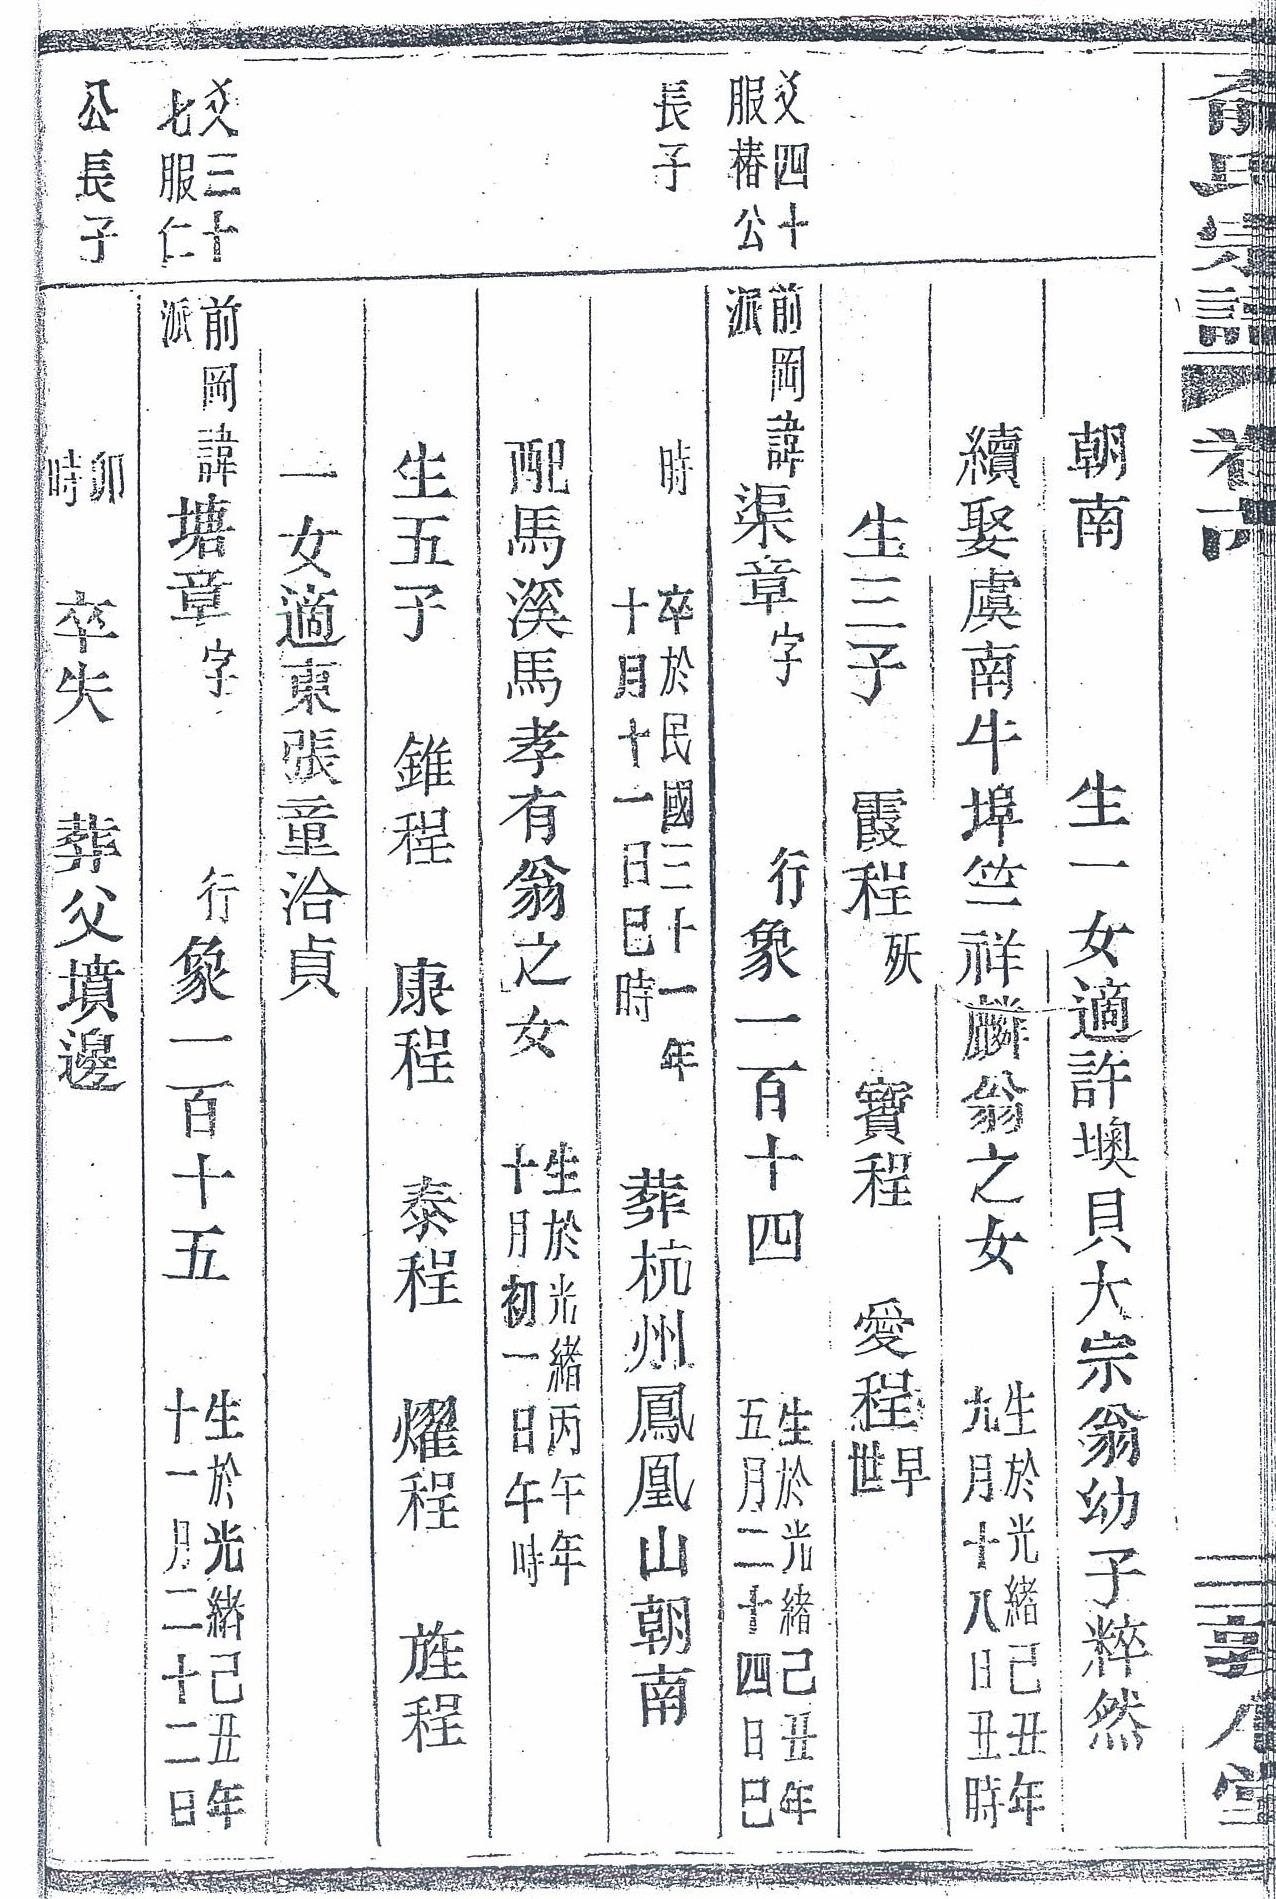 俞氏宗譜 卷六
朝南 生一女適許墺貝大宗翁幼子粹然
續娶虞南牛埠竺祥麟翁之女 生於光緒己丑年九月十八日丑時
生三子 霞程 殀 寶程 愛程 早世
爻四十服椿公長子
前岡派諱渠章字 行象一百十四 生於光緒己丑年五月二十四日巳
時 卒於民國三十一年十月十一日巳時 葬杭州鳳凰山朝南
配馬溪馬孝有翁之女 生於光緒丙午年十月初一日午時
生五子 錐程 康程 泰程 燿程 旌程
一女適東張童洽貞
爻三十七服仁公長子
前岡派諱塘章字 行象一百十五 生於光緒己丑年十一月二十二日
卯時 卒失 葬父墳邊